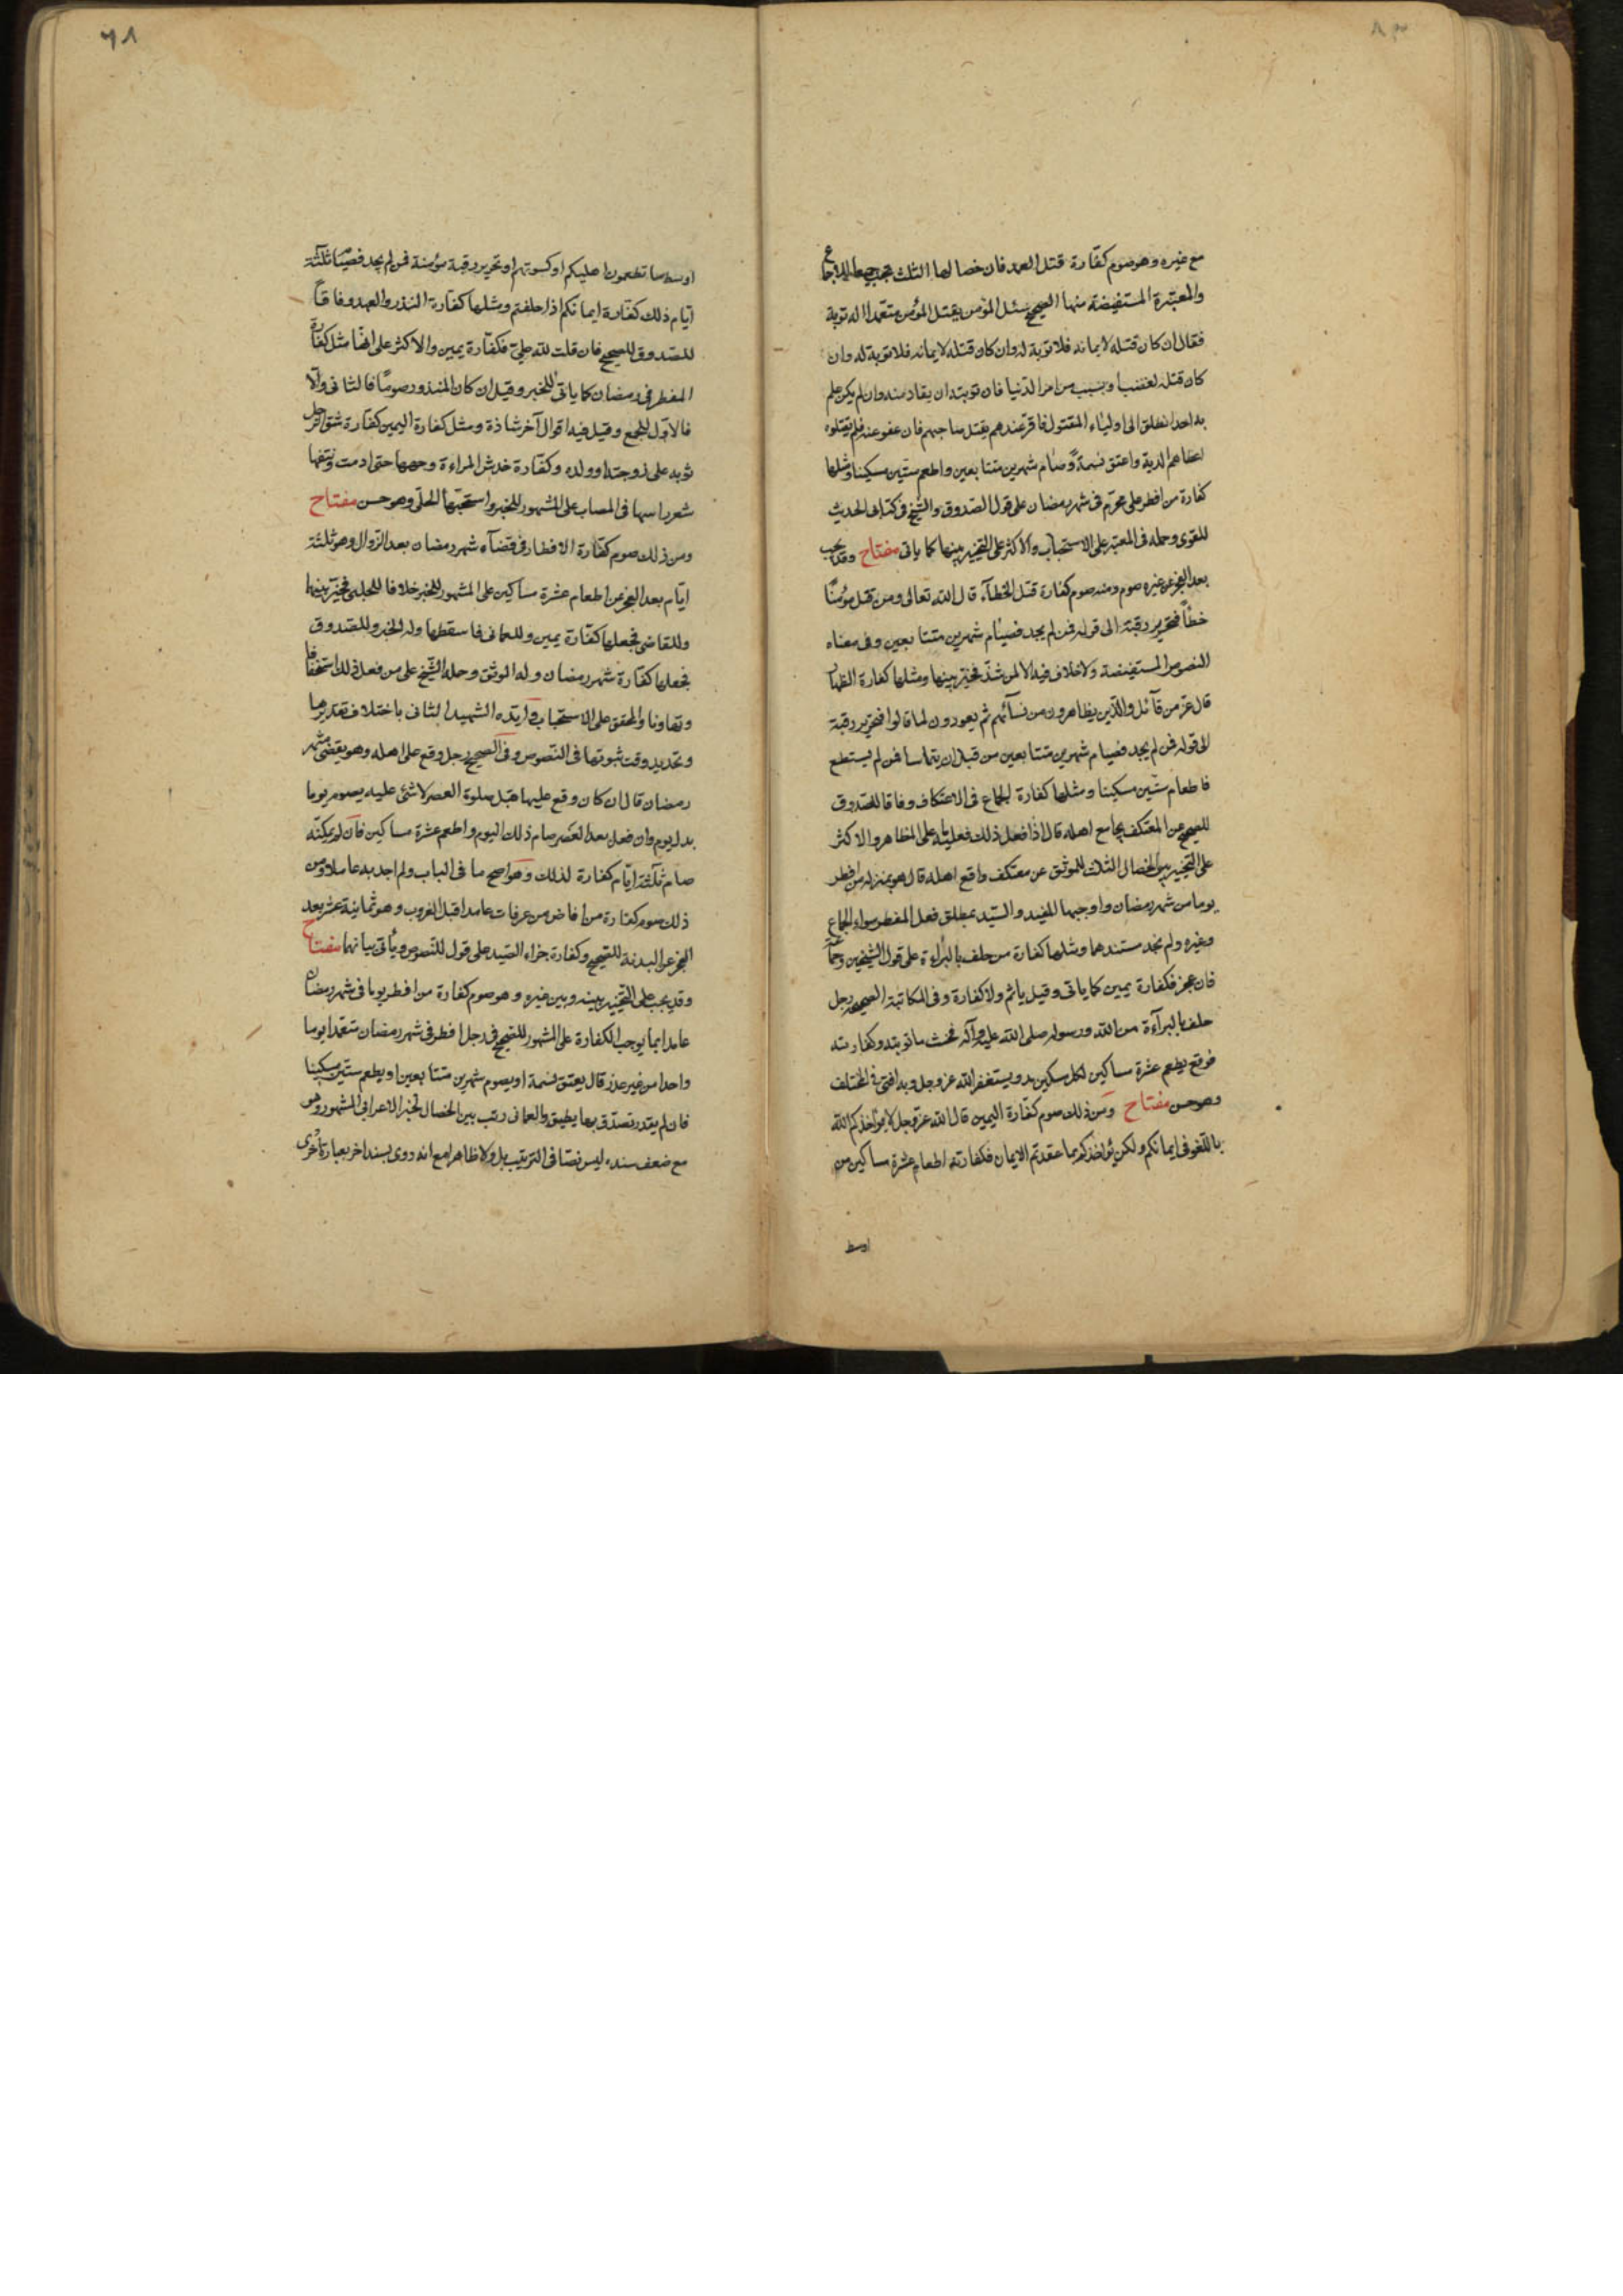 مع غيره وهو صوم كفارة قتل العمد فان خصالها الثلث تجب جميعا للاجماع
والمعتبرة المستفيضة منها الصحيح سئل المؤمن يقتل المؤمن متعمدا اله توبة
فقال ان كان قتله لايمانه فلا توبة له وان كان قتله لايمانه فلا توبة له وان
كان قتله لغضب او بسبب من امر الدنيا فان توبته ان يقاد منه وان لم يكن علم
به احد انطلق الى اولياء المقتول فاقر عندهم بقتل صاحبهم فان عفو عنه فلم يقتلوه
اعطاهم الدية واعتق نسمة وصام شهرين متتابعين واطعم ستين مسكينا ومثلها
كفارة من افطر على محرم فى شهر رمضان على قول الصدوق والشيخ فى كتابى الحديث
للقوى وحمله فى المعتبر على الاستحباب والاكثر على التخيير بينها كما ياتى مفتاح وقد يجب
بعد العجز عن غيره صوم ومنه صوم كفارة قتل الخطآء قال الله تعالى ومن قتل مؤمنًا
خطأً فتحرير رقبة الى قوله فمن لم يجد فصيام شهرين متتابعين وفى معناه
النصوص المستفيضة ولا خلاف فيه الا لمن شذ فخير بينها ومثلها كفارة الظهار
قال عز من قآئل والذين يظاهرون من نسآئهم ثم يعودون لما قالوا فتحرير رقبة
الى قوله فمن لم يجد فصيام شهرين متتابعين من قبل ان يتماسا فمن لم يستطع
فاطعام ستين مسكينا ومثلها كفارة الجماع فى الاعتكاف وفاقا للصدوق
للصحيح عن المعتكف يجامع اهله قال اذا فعل ذلك فعليه ما على المظاهر والاكثر
على التخيير بين الخصال الثلاث للموثق عن معتكف واقع اهله قال هو بمنزله من افطر
يوما من شهر رمضان واوجبها المفيد والسيد بمطلق فعل المفطر سواء الجماع
وغيره ولم نجد مستندهما ومثلها كفارة من حلف بالبراءة على قول الشيخين وجماعة
فان عجز فكفارة يمين كما ياتى وقيل ياثم ولا كفارة وفى المكاتبة الصحيحة رجل
حلف بالبرآءة من الله ورسوله صلى الله عليه وآله فحنث ما توبته وكفارته
فوقع يطعم عشرة مساكين لكل مسكين مد ويستغفر الله عز وجل وبه افتى فى المختلف
وهو حسن مفتاح ومن ذلك صوم كفارة اليمين قال الله عز وجل لا يؤاخذكم الله
باللغو فى ايمانكم ولكن يؤاخذكم بما عقدتم الايمان فكفارته اطعام عشرة مساكين من
اوسط
٦٨
اوسط ما تطعمون اهليكم او كسوتهم او تحرير رقبة مؤمنة فمن لم يجد فصيام ثلثة
ايام ذلك كفارة ايمانكم اذا حلفتم ومثلها كفارة النذر والعهد وفاقًا
للصدوق للصحيح فان قلت لله على فكفارة يمين والاكثر على انها مثل كفارة
المفطر فى رمضان كما ياتى للخبر وقيل ان كان المنذور صومًا فالثانى والا
فالاول للجمع وقيل فيه اقوال آخر شاذة ومثل كفارة اليمين كفارة شق الرجل
ثوبه على زوجته او ولده وكفارة خدش المراءة وجهها حتى ادمت ونتفها
شعر راسها فى المصاب على المشهور للخبر واستحبها الحلى وهو حسن مفتاح
ومن ذلك صوم كفارة الافطار فى قضآء شهر رمضان بعد الزوال وهو ثلثة
ايام بعد العجز عن اطعام عشرة مساكين على المشهور للخبر خلافا للحلبى فخير بينهما
وللقاضى فجعلها كفارة يمين وللعمانى فاسقطها وله الخبر وللصدوق
فجعلها كفارة شهر رمضان وله الموثق وحمله الشيخ على من فعل ذلك استخفافا
وتهاونا والمحقق على الاستحباب وايده الشهيد الثانى باختلاف تقديرها
وتحديد وقت ثبوتها فى النصوص وفى الصحيح رجل وقع على اهله وهو يقضى شهر
رمضان قال ان كان وقع عليها قبل صلوة العصر لا شئ عليه يصوم يوما
بدل يوم وان فعل بعد العصر صام ذلك اليوم واطعم عشرة مساكين فان لم يمكنه
صام ثلثة ايام كفارة لذلك وهو اصح ما فى الباب ولم اجد به عاملا ومن
ذلك صوم كفارة من افاض من عرفات عامدا قبل الغروب وهو ثمانية عشر بعد
العجز عن البدنة للصحيح وكفارة جزاء الصيد على قول للنصوص وياتى بيانها مفتاح
وقد يجب على التخيير بينه وبين غيره وهو صوم كفارة من افطر يوما فى شهر رمضان
عامدا بما يوجب الكفارة على المشهور للصحيح فى رجل افطر فى شهر رمضان متعمدا يوما
واحدا من غير عذر قال يعتق نسمة او يصوم شهرين متتابعين او يطعم ستين مسكينا
فان لم يقدر تصدق بما يطيق والعمانى رتب بين الخصال لخبر الاعرابى المشهور وهو
مع ضعف سنده ليس نصا فى الترتيب بل ولا ظاهرا مع انه روى بسند اخر بعبارة اخرى